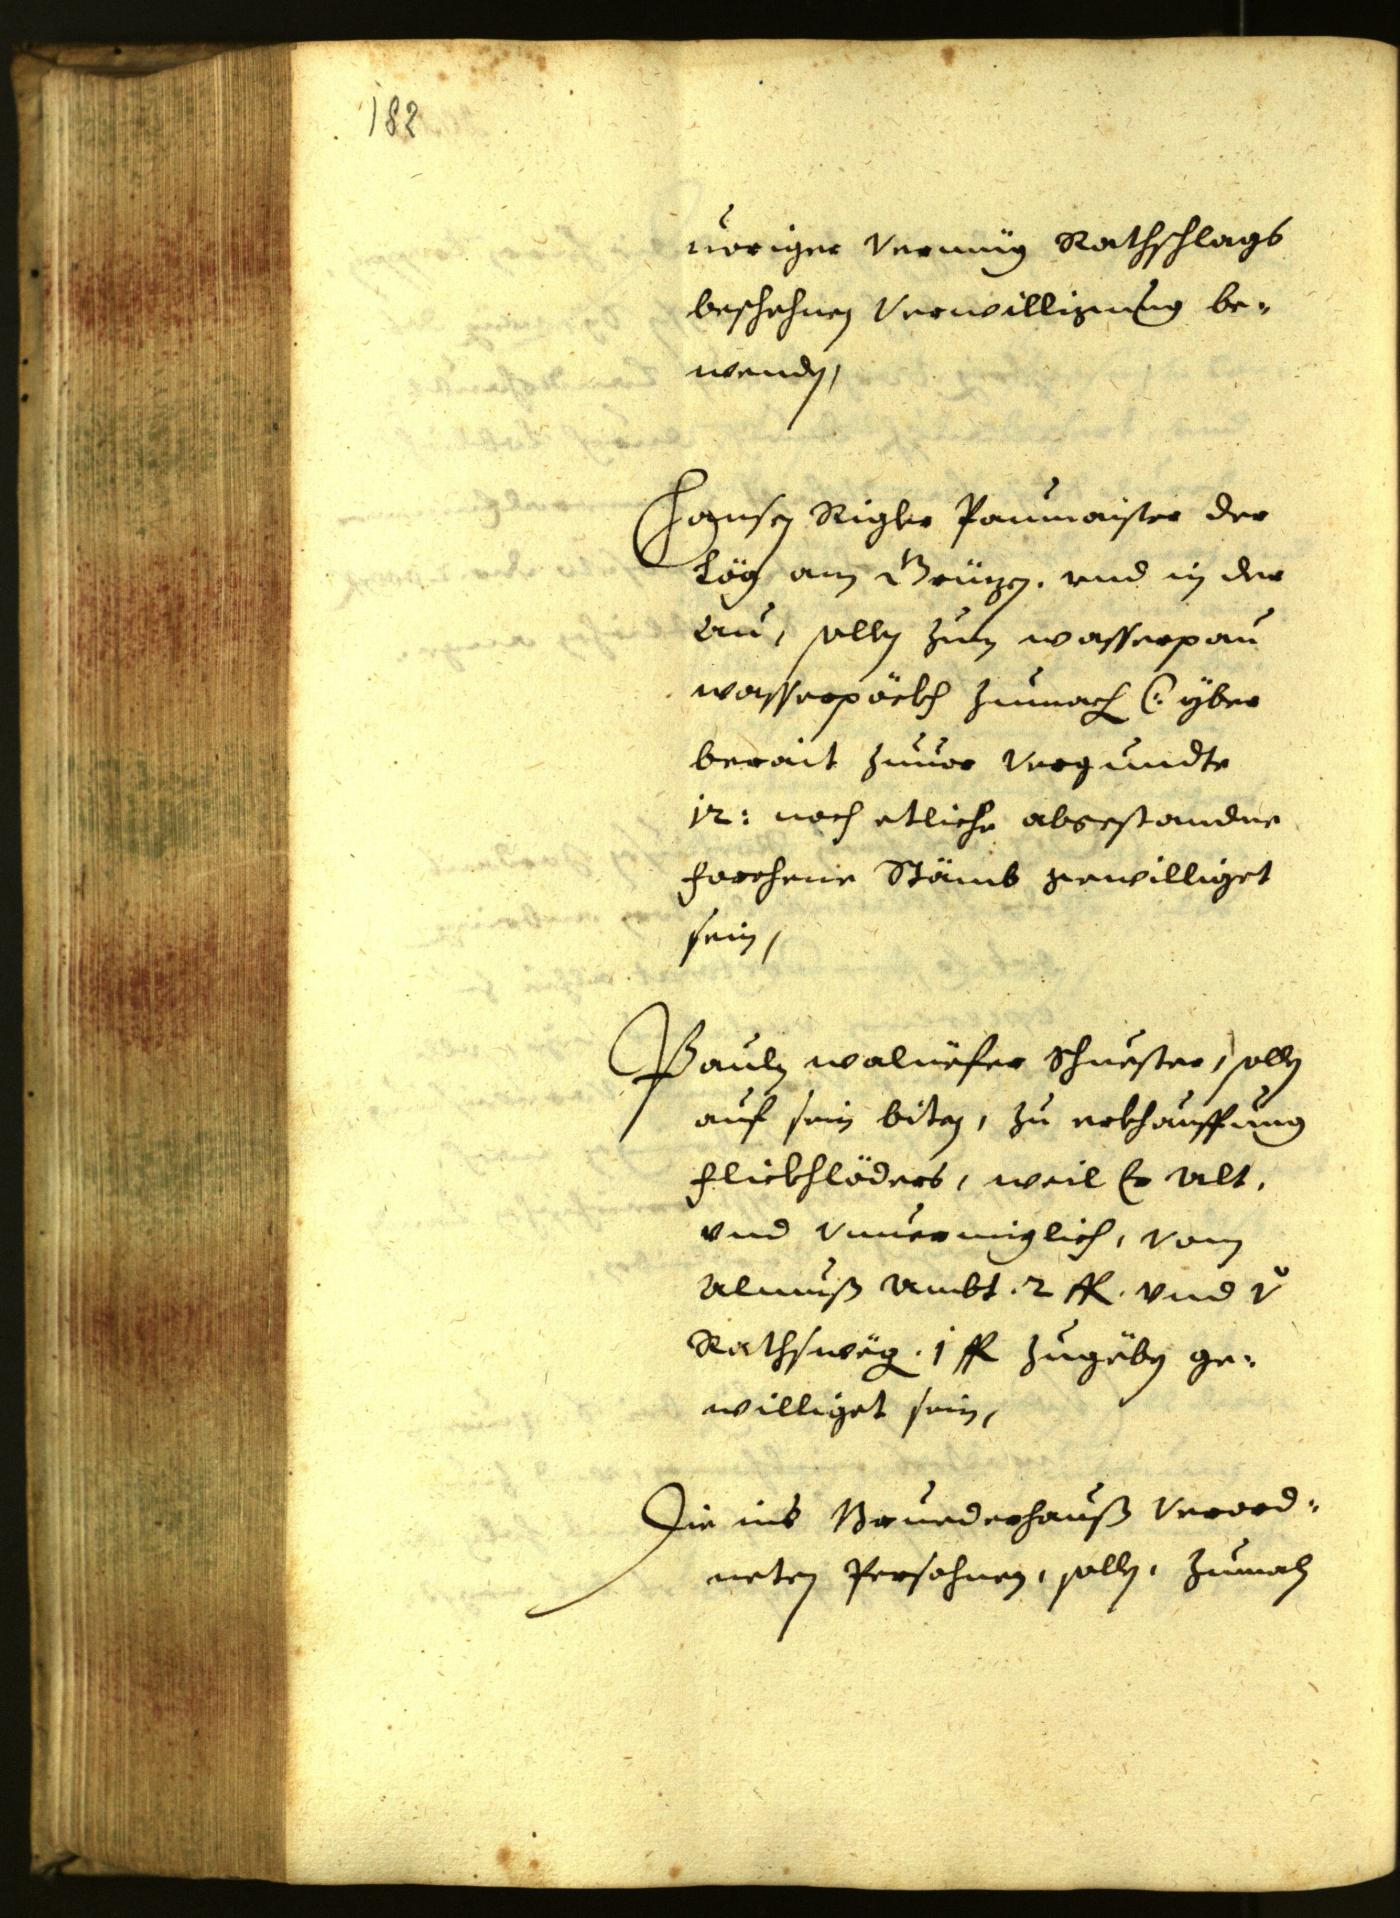 182
voriger Vermüg Rathschlags
beschehnen Verwilligung be-
wenden,
Hansen Rigler Paumaister der
Lög am Grüzen. vnd in der
Au, sollen zum wasserpau
wasserpöckh zumach (: yber
berait zuuor Vergundte
12: noch etliche abgestandne
forchene Stämb gewilliget
sein,
Pauln Schuester, sollen
auf sein biten, zu erkhauffung
flickhlöders, weil Er Alt,
vnd Vnuermiglich, vom
Almuß Ambt. 2 fl. vnd V
Rathsweg. 1 fl zugeben ge-
williget sein,
Die ins Bruederhauß Verord-
neten Persohnen, sollen, zumaln